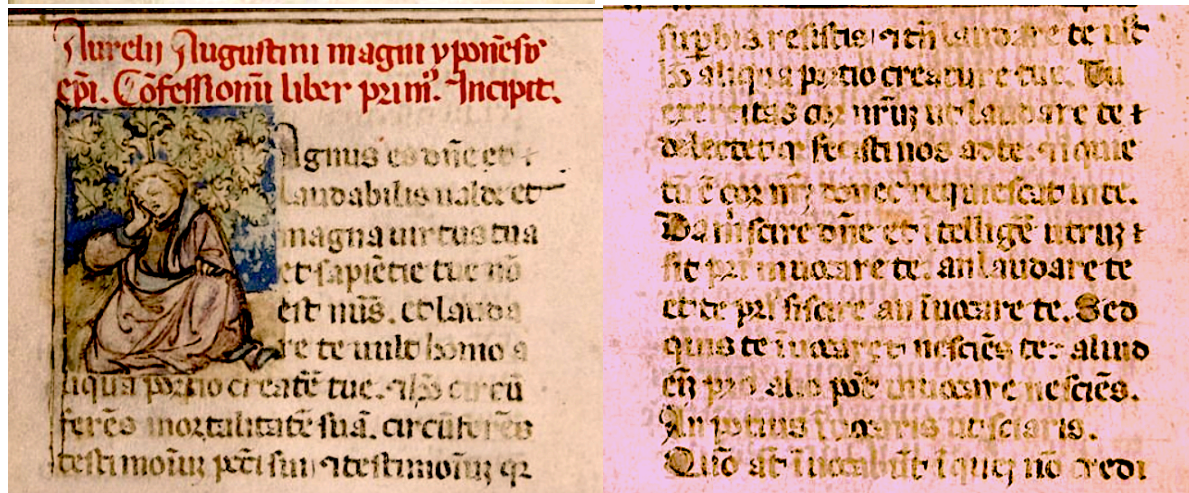 Aurelii Augustini magni yponēsis
ep̄i. Cōfessionū liber primꝰ. Incipit.
agnus es dn̄e et
laudabilis ualde et
magna uirtus tua
et sapiētie tue nō
est nūs. et lauda
re te uult homo a
liqua portio creatē tue. circū
ferēs mortalitatē suā. circūferēs
testimoniuꝫ pcc̄i sui ⁊ testimoniuꝫ qꝛ
supbis resistis laudare te uult
aliqua portio creature tue. Tu
excitas cor nr̄uꝫ ut laudare te
delectet qꝛ fecisti nos ad te. ⁊ iquie
tū ē cor nr̄ꝫ donec requiescat in te.
Da m̄ scire dn̄e et ītelligē utruꝫ
sit pri inuocare te. an laudare te
et te pri scire an īuocare te. Sed
quis te īuocaret nesciēs te. aliud
eī pro alio pōt inuocare nesciēs.
An potius īuocaris ut sciaris.
Quō at̄ īuocabūt ī queꝫ nō credi